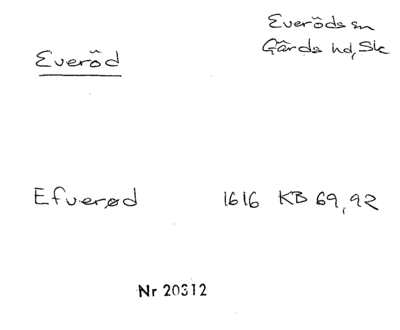 Everöds sn
Gärds hd, Sk
Everöd
Efverød 1616 KB 69, 92
Nr 20312